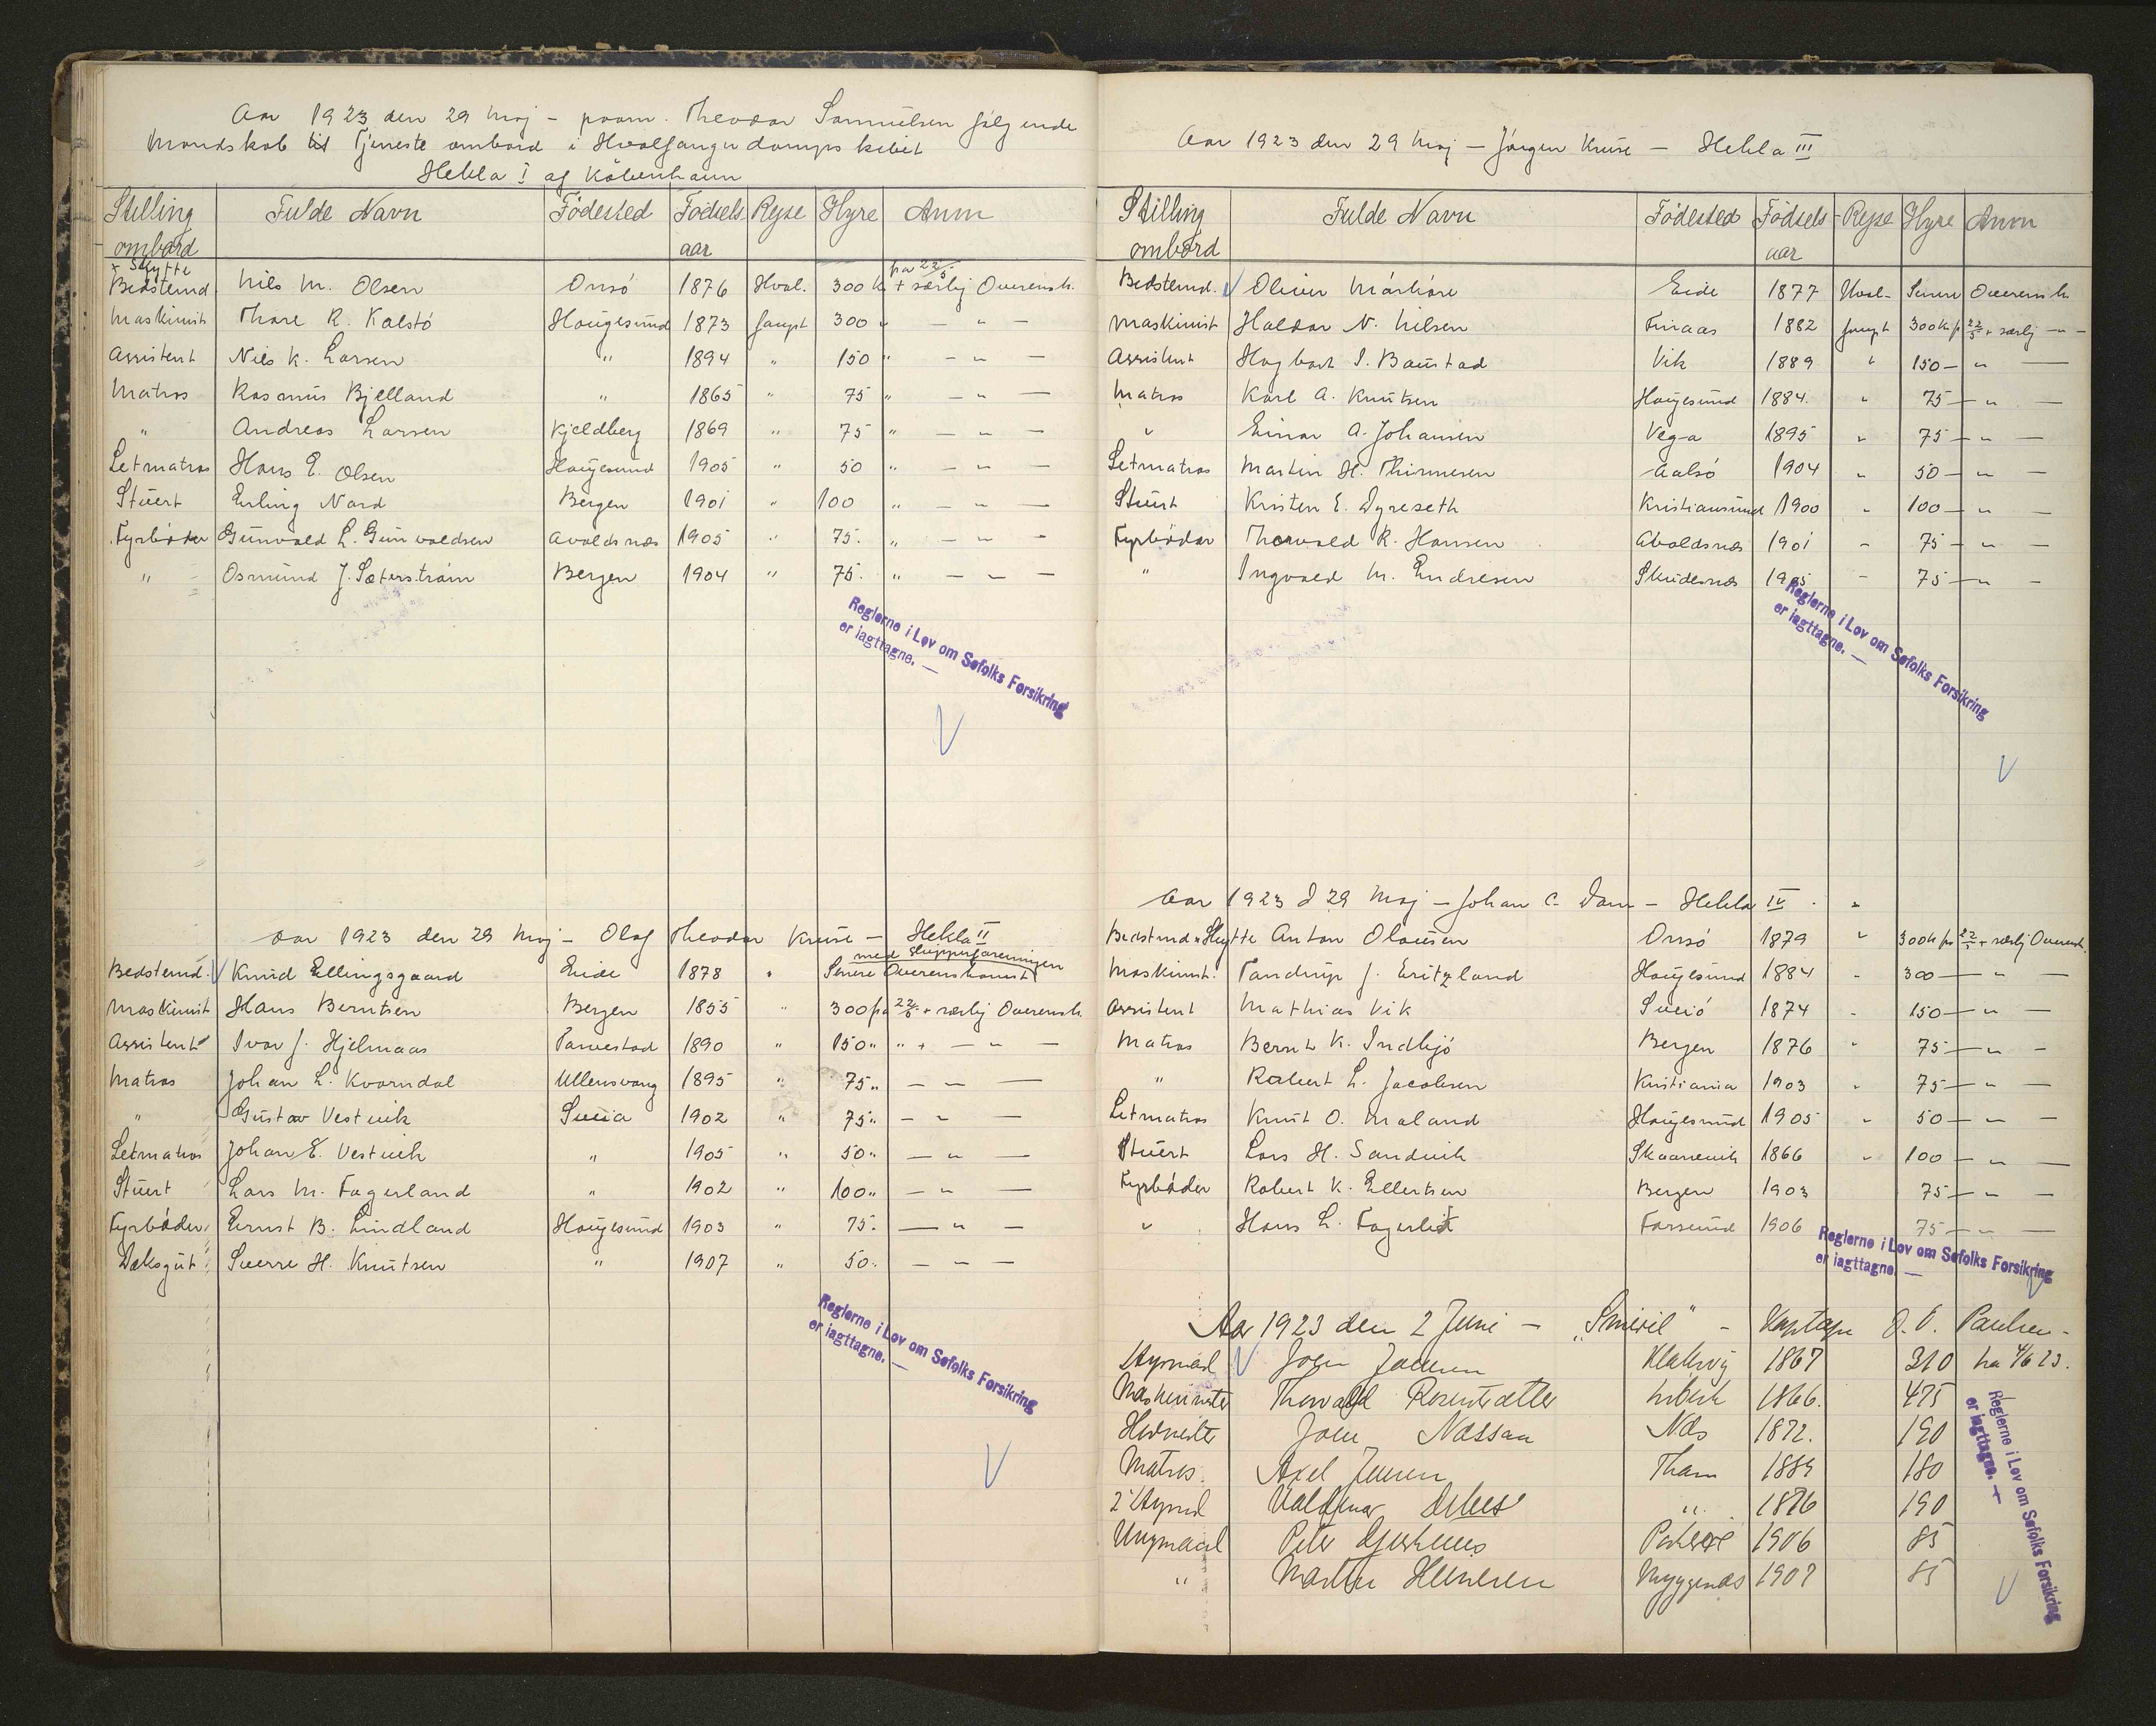 Aar 1923 den 29 Maj - paam. Theodor Samuelsen følgende
Mandskab til Tjeneste ombord i Hvalfangerdampskibet
Hekla I af København
Stilling ombord Fulde Navn Fødested Fødsels aar Rejse Hyre Anm
+ Skytte fra 22/5
Bedstemd. Nils M. Olsen Onsö 1876 Hval. 300 Kr + særlig Overensk.
Maskinist Thore R. Kalstö Haugesund 1873 fangst 300 " — " —
Assistent Nils K. Larsen " 1894 " 150 " — " —
Matros Rasmus Bjelland " 1865 " 75 " — " —
" Andreas Larsen Kjeldberg 1869 " 75 " — " —
Letmatros Hans E. Olsen Haugesund 1905 " 50 " — " —
Stuert Erling Nord Bergen 1901 " 100 " — " —
Fyrbøder Gunvald L. Gunvaldsen Avaldsnæs 1905 " 75. " — " —
" Osmund J. Sæterström Bergen 1904 " 75. " — " —
Reglerne i Lov om Søfolks Forsikring
er iagttagne. —
Aar 1923 den 29 Maj - Olaf Theodor Kruse - Hekla II
med Skipperforeningen
Bedstemd. Knud Ellingsgaard Eide 1878 " Senere Overenskomst
Maskinist Hans Berntsen Bergen 1855 " 300 fra 22/5 + særlig Overensk.
Assistent Ivar J. Hjelmaas Tarvestad 1890 " 150 " " + — " —
Matros Johan L. Kvarndal Ullensvang 1895 " 75 " — " —
" Gustav Vestvik Sveia 1902 " 75 " — " —
Letmatros Johan E. Vestvik " 1905 " 50 " — " —
Stuert Lars M. Fagerland " 1902 " 100 " — " —
Fyrbøder Ernst B. Lindland Haugesund 1903 " 75. — " —
Dæksgut Sverre H. Knutsen " 1907 " 50. — " —
Reglerne i Lov om Søfolks Forsikring
er iagttagne. —
Aar 1923 den 29 Maj - Jørgen Kruse - Hekla III
Stilling ombord Fulde Navn Fødested Fødsels- aar Rejse Hyre Anm
Bedstemd. Oliver Mörköre Eide 1877 Hval- Senere Overensk.
Maskinist Haldor N. Nilsen Finaas 1882 fangst 300 Kr fr 22/5 + særlig — " —
Assistent Hagbart I. Baustad Vik 1889 " 150 — " —
Matros Karl A. Knutsen Haugesund 1884. " 75 — " —
" Einar A. Johansen Vega 1895 " 75 — " —
Letmatros Martin H. Thinnesen Aalsö 1904 " 50 — " —
Stuert Kristen E. Dyreseth Kristiansund 1900 " 100 — " —
Fyrbødar Thorvald R. Hansen Avaldsnæs 1901 " 75 — " —
" Ingvald M. Endresen Skudesnæs 1905 " 75 — " —
Reglerne i Lov om Søfolks Forsikring
er iagttagne. —
Aar 1923 d 29 Maj - Johan C. Dam - Hekla IV
Bedstmd + Skytte Anton Olausen Onsö 1879 " 300 Kr fra 22/5 + særlig Overensk.
Maskinist. Tandrup J. Eritzland Haugesund 1884 " 300 — " —
Assistent Mathias Vik Sveiö 1874 " 150 — " —
Matros Bernt K. Indbjö Bergen 1876 " 75 — " —
" Robert L. Jacobsen Kristiania 1903 " 75 — " —
Letmatros Knut O. Maland Haugesund 1905 " 50 — " —
Stuert Lars H. Sandvik Skaanevik 1866 " 100 — " —
Fyrbøder Robert K. Ellertsen Bergen 1903 75 — " —
" Hans L. Fagerli Farsund 1906 75 — " —
Reglerne i Lov om Søfolks Forsikring
er iagttagne. —
Aar 1923 den 2 Juni - "Smiril" - Kaptajn Paulsen -
Styrmd Joen Joensen Klaksvig 1867 310 fra 4/6 23.
Maskinmester Thorvald 1866. 475
Hovmester Joen Nassau Næs 1872. 190
Matros. Axel Jensen Tham 1889 180
2' Styrmd Valdemar Debes " 1876 190
Ungmand Peter Djurhuus Porkere 1906 85
" Martin Heinesen Myggenæs 1907 85
Reglerne i Lov om Søfolks Forsikring
er iagttagne. —